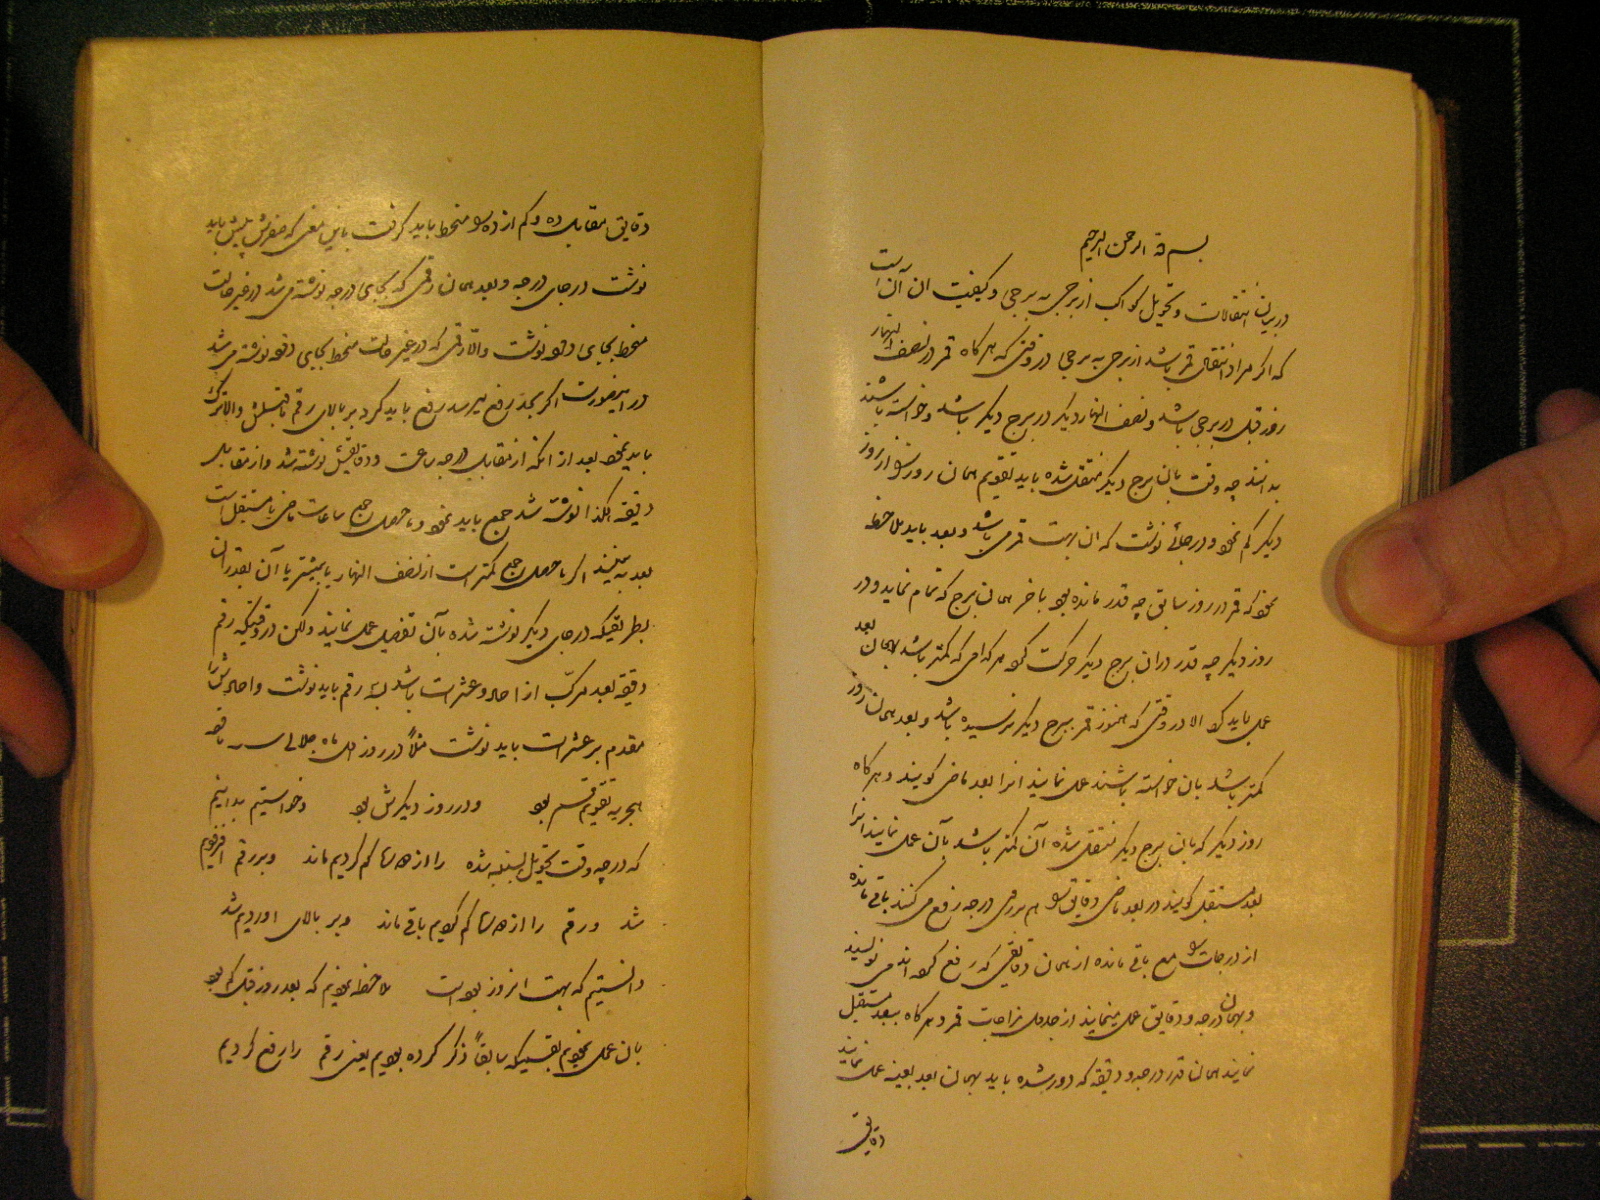 بسم الله الرحمن الرحیم
در بیان انتقالات و تحویل کواکب از برجی به برجی و کیفیت ان آن است
که اگر مراد انتقال قمر باشد از برجی به برجی در وقتی که هر گاه قمر در نصف النهار
روز قبل در برجی باشد و نصف النهار دیگر در برج دیگر باشد و خواسته باشند
بدانند چه وقت بان برج دیگر منتقل شده باید تقویم همان روز را از روز
دیگر کم نمود و در جائی نوشت که ان بهت قمر می باشد و بعد باید ملاحظه
نمود که قمر در روز سابق چه قدر مانده بود باخر همان برج که تمام نماید و در
روز دیگر چه قدر دران برج دیگر حرکت کرده هر کدامی که کمتر باشد بهمان بعد
عمل باید کرد الا در وقتی که هنوز قمر ببرج دیگر نرسیده باشد و بعد همان روز
کمتر باشد بان خواسته باشند عمل نمایند انرا بعد ماضی گویند و هر گاه
روز دیگر که بان برج دیگر منتقل شده آن کمتر باشد بآن عمل نمایند انرا
بعد مستقبل گویند در بعد ماضی دقایق را هم بر روی درجه رفع می کنند باقی مانده
از درجات را مع باقی مانده از همان دقایقی که رفع کرده اند می نویسند
و بهمان درجه و دقایق عمل مینمایند از جدول مزاجات قمر و هر گاه ببعد مستقبل
نمایند همان قدر درجه و دقیقه که دور شده باید بهمان بعد بعینه عمل نمایند
دقایق
دقایق مقابل ده و کم از ده را منحط باید گرفت باین معنی که صفرش پیش باید
نوشت در جای درجه و بعد همان رقمی که بجای درجه نوشته می شد در غیر حالت
منحط بجای دقیقه نوشت والا رقمی که در غیر حالت منحط بجای دقیقه نوشته می شد
در اینصورت اگر بحد رفع میرسد رفع باید کرد بر بالای رقم ماقبلش والا ترک
باید نمود بعد از انکه از مقابل درجه ساعت و دقایقش نوشته شد و از مقابل
دقیقه هکذا نوشته شد جمع باید نمود و حاصل جمع ساعات ماضی یا مستقبل است
بعد به بینند اگر حاصل جمع کمتر است از نصف النهار یا بیشتر یا آن بقدر ان
بطریقیکه در جای دیگر نوشته شده بآن تفصیل عمل نمایند ولکن در وقتیکه رقم
دقیقه بعد مرکب از احاد و عشرات باشد سه رقم باید نوشت و احادش را
مقدم بر عشرات باید نوشت مثلاً در روز اول ماه جلالی
هجریه تقویم قسم بود و در روز دیگرش بود و خواستیم بدانیم
که در چه وقت تحویل بسنبله شده را از کم کردیم ماند و بر رقم افزودیم
شد و رقم را از کم کردیم باقی ماند و بر بالای اوردیم شد
دانستیم که بهت انروز بوده است ملاحظه نمودیم که بعد روز قبل کم بود
بان عمل نمودیم بقسمیکه سابقاً ذکر کرده بودیم یعنی رقم را رفع کردیم